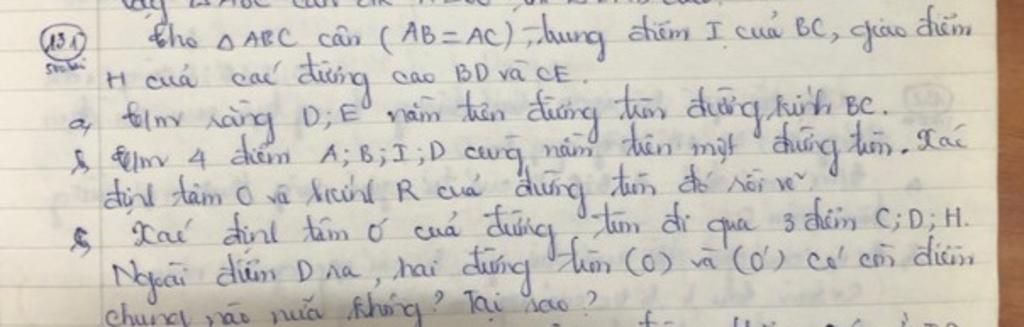 (131) Cho △ ABC cân (AB = AC), trung điểm I của BC, giao điểm
H của các đường cao BD và CE.
a, C/mr rằng D; E nằm trên đường tròn đường kính BC.
b, C/mr 4 điểm A; B; I; D cùng nằm trên một đường tròn. Xác
định tâm O và b.kính R của đường tròn đó rồi vẽ.
c, Xác định tâm O' của đường tròn đi qua 3 điểm C; D; H.
Ngoài điểm D ra, hai đường tròn (O) và (O') có còn điểm
chung nào nữa không? Tại sao?